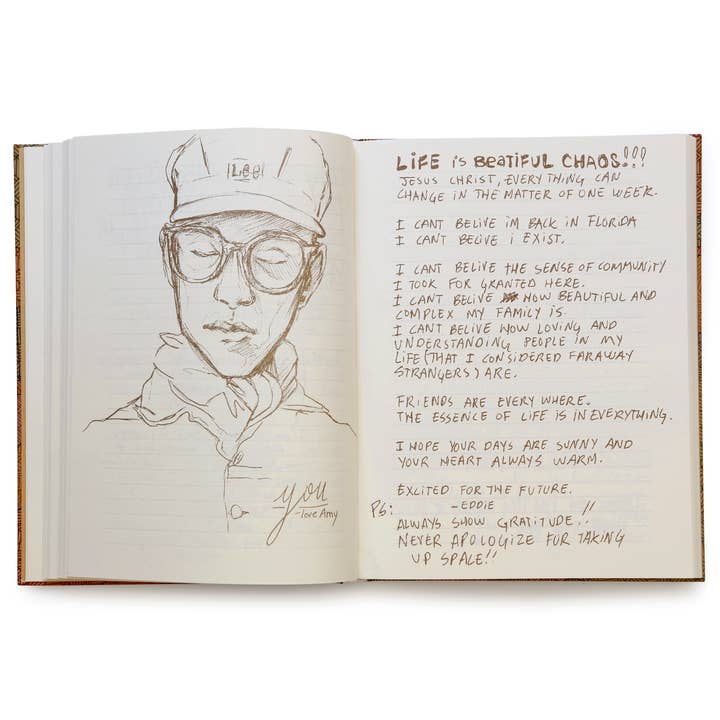 Lee
you
-love Amy
LIFE is BEATIFUL CHAOS!!!
JESUS CHRIST, EVERY THING CAN
CHANGE IN THE MATTER OF ONE WEEK.
I CANT BELIVE IM BACK IN FLORIDA
I CANT BELIVE i EXIST.
I CANT BELIVE THE SENSE OF COMMUNITY
I TOOK FOR GRANTED HERE.
I CANT BELIVE HOW BEAUTIFUL AND
COMPLEX MY FAMILY IS
I CANT BELIVE HOW LOVING AND
UNDERSTANDING PEOPLE IN MY
LIFE (THAT I CONSIDERED FARAWAY
STRANGERS) ARE.
FRIENDS ARE EVERY WHERE.
THE ESSENCE OF LIFE IS IN EVERYTHING.
I HOPE YOUR DAYS ARE SUNNY AND
YOUR HEART ALWAYS WARM.
EXCITED FOR THE FUTURE.
-EDDIE
PS:
ALWAYS SHOW GRATITUDE!!
NEVER APOLOGIZE FOR TAKING
UP SPACE!!